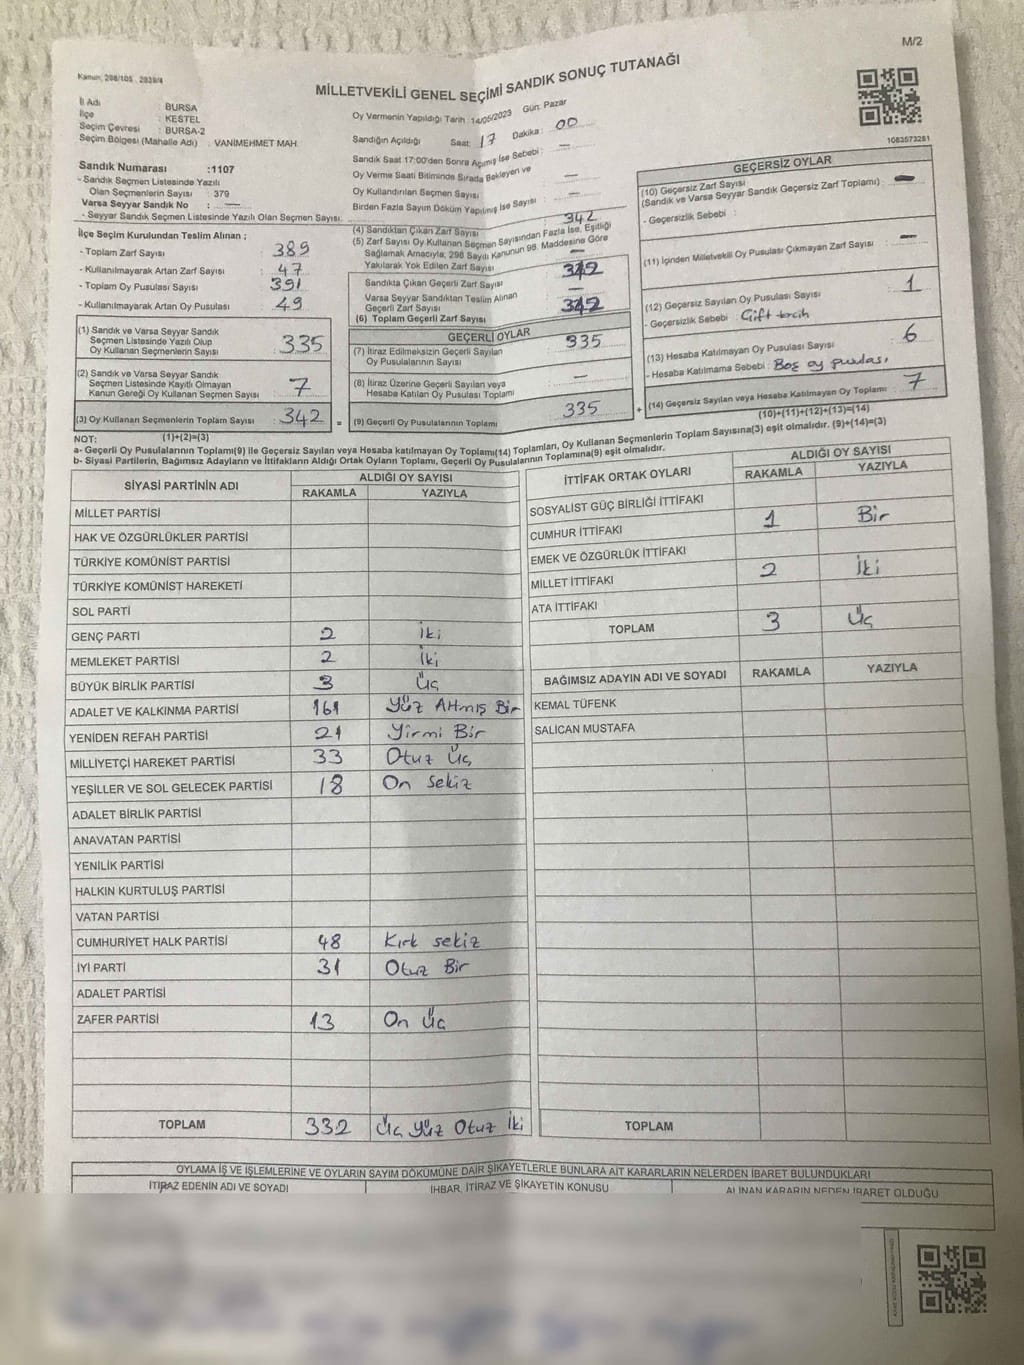 M/2
Kanun: 298/105 , 2839/4
MİLLETVEKİLİ GENEL SEÇİMİ SANDIK SONUÇ TUTANAĞI
1083573281
İl Adı : BURSA
İlçe : KESTEL
Seçim Çevresi : BURSA-2
Seçim Bölgesi (Mahalle Adı) : VANIMEHMET MAH.
Oy Vermenin Yapıldığı Tarih : 14/05/2023 Gün: Pazar
Sandığın Açıldığı Saat: 17 Dakika: 00
Sandık Saat 17:00'den Sonra Açmış İse Sebebi : —
Oy Verme Saati Bitiminde Sırada Bekleyen ve
Oy Kullandırılan Seçmen Sayısı : —
Birden Fazla Sayım Döküm Yapılmış İse Sayısı : —
Sandık Numarası :1107
- Sandık Seçmen Listesinde Yazılı
Olan Seçmenlerin Sayısı : 379
Varsa Seyyar Sandık No : —
- Seyyar Sandık Seçmen Listesinde Yazılı Olan Seçmen Sayısı:
İlçe Seçim Kurulundan Teslim Alınan ;
- Toplam Zarf Sayısı : 389
- Kullanılmayarak Artan Zarf Sayısı : 47
- Toplam Oy Pusulası Sayısı : 391
- Kullanılmayarak Artan Oy Pusulası : 49
(1) Sandık ve Varsa Seyyar Sandık
Seçmen Listesinde Yazılı Olup
Oy Kullanan Seçmenlerin Sayısı : 335
(2) Sandık ve Varsa Seyyar Sandık
Seçmen Listesinde Kayıtlı Olmayan
Kanun Gereği Oy Kullanan Seçmen Sayısı : 7
(3) Oy Kullanan Seçmenlerin Toplam Sayısı : 342
(1)+(2)=(3)
(4) Sandıktan Çıkan Zarf Sayısı : 342
(5) Zarf Sayısı Oy Kullanan Seçmen Sayısından Fazla İse, Eşitliği
Sağlamak Amacıyla; 298 Sayılı Kanunun 98. Maddesine Göre
Yakılarak Yok Edilen Zarf Sayısı : —
Sandıkta Çıkan Geçerli Zarf Sayısı : 342
Varsa Seyyar Sandıktan Teslim Alınan
Geçerli Zarf Sayısı : —
(6) Toplam Geçerli Zarf Sayısı : 342
GEÇERLİ OYLAR
(7) İtiraz Edilmeksizin Geçerli Sayılan
Oy Pusulalarının Sayısı : 335
(8) İtiraz Üzerine Geçerli Sayılan veya
Hesaba Katılan Oy Pusulası Toplamı : —
= (9) Geçerli Oy Pusulalarının Toplamı : 335
GEÇERSİZ OYLAR
(10) Geçersiz Zarf Sayısı
(Sandık ve Varsa Seyyar Sandık Geçersiz Zarf Toplamı) : —
- Geçersizlik Sebebi :
(11) İçinden Milletvekili Oy Pusulası Çıkmayan Zarf Sayısı : —
(12) Geçersiz Sayılan Oy Pusulası Sayısı : 1
- Geçersizlik Sebebi : Çift tercih
(13) Hesaba Katılmayan Oy Pusulası Sayısı : 6
- Hesaba Katılmama Sebebi : Boş oy pusulası
+ (14) Geçersiz Sayılan veya Hesaba Katılmayan Oy Toplamı : 7
(10)+(11)+(12)+(13)=(14)
NOT:
a- Geçerli Oy Pusulalarının Toplamı(9) ile Geçersiz Sayılan veya Hesaba katılmayan Oy Toplamı(14) Toplamları, Oy Kullanan Seçmenlerin Toplam Sayısına(3) eşit olmalıdır. (9)+(14)=(3)
b- Siyasi Partilerin, Bağımsız Adayların ve İttifakların Aldığı Ortak Oyların Toplamı, Geçerli Oy Pusulalarının Toplamına(9) eşit olmalıdır.
SİYASİ PARTİNİN ADI ALDIĞI OY SAYISI
RAKAMLA YAZIYLA
MİLLET PARTİSİ
HAK VE ÖZGÜRLÜKLER PARTİSİ
TÜRKİYE KOMÜNİST PARTİSİ
TÜRKİYE KOMÜNİST HAREKETİ
SOL PARTİ
GENÇ PARTİ 2 İki
MEMLEKET PARTİSİ 2 İki
BÜYÜK BİRLİK PARTİSİ 3 Üç
ADALET VE KALKINMA PARTİSİ 161 Yüz Atmış Bir
YENİDEN REFAH PARTİSİ 21 Yirmi Bir
MİLLİYETÇİ HAREKET PARTİSİ 33 Otuz Üç
YEŞİLLER VE SOL GELECEK PARTİSİ 18 On Sekiz
ADALET BİRLİK PARTİSİ
ANAVATAN PARTİSİ
YENİLİK PARTİSİ
HALKIN KURTULUŞ PARTİSİ
VATAN PARTİSİ
CUMHURİYET HALK PARTİSİ 48 Kırk sekiz
İYİ PARTİ 31 Otuz Bir
ADALET PARTİSİ
ZAFER PARTİSİ 13 On Üç
TOPLAM 332 Üç Yüz Otuz İki
İTTİFAK ORTAK OYLARI ALDIĞI OY SAYISI
RAKAMLA YAZIYLA
SOSYALİST GÜÇ BİRLİĞİ İTTİFAKI
CUMHUR İTTİFAKI 1 Bir
EMEK VE ÖZGÜRLÜK İTTİFAKI
MİLLET İTTİFAKI 2 İki
ATA İTTİFAKI
TOPLAM 3 Üç
BAĞIMSIZ ADAYIN ADI VE SOYADI RAKAMLA YAZIYLA
KEMAL TÜFENK
SALİCAN MUSTAFA
TOPLAM
OYLAMA İŞ VE İŞLEMLERİNE VE OYLARIN SAYIM DÖKÜMÜNE DAİR ŞİKAYETLERLE BUNLARA AİT KARARLARIN NELERDEN İBARET BULUNDUKLARI
İTİRAZ EDENİN ADI VE SOYADI İHBAR, İTİRAZ VE ŞİKAYETİN KONUSU ALINAN KARARIN NEDEN İBARET OLDUĞU